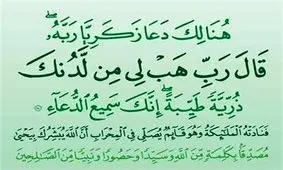 هُنَالِكَ دَعَا زَكَرِيَّا رَبَّهُۥ
قَالَ رَبِّ هَبْ لِى مِن لَّدُنكَ
ذُرِّيَّةً طَيِّبَةً إِنَّكَ سَمِيعُ الدُّعَاءِ
فَنَادَتْهُ الْمَلَٰٓئِكَةُ وَهُوَ قَآئِمٌ يُصَلِّى فِى الْمِحْرَابِ أَنَّ اللَّهَ يُبَشِّرُكَ بِيَحْيَىٰ
مُصَدِّقًۢا بِكَلِمَةٍ مِّنَ اللَّهِ وَسَيِّدًا وَحَصُورًا وَنَبِيًّا مِّنَ الصَّٰلِحِينَ